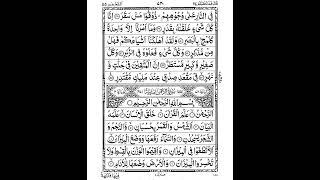 فِي النَّارِ عَلٰى وُجُوْهِهِمْ ذُوْقُوْا مَسَّ سَقَرَ ۝ اِنَّا
كُلَّ شَيْءٍ خَلَقْنٰهُ بِقَدَرٍ ۝ وَمَآ اَمْرُنَآ اِلَّا وَاحِدَةٌ
كَلَمْحٍۢ بِالْبَصَرِ ۝ وَلَقَدْ اَهْلَكْنَآ اَشْيَاعَكُمْ فَهَلْ مِنْ
مُّدَّكِرٍ ۝ وَكُلُّ شَيْءٍ فَعَلُوْهُ فِي الزُّبُرِ ۝ وَكُلُّ
صَغِيْرٍ وَّكَبِيْرٍ مُّسْتَطَرٌ ۝ اِنَّ الْمُتَّقِيْنَ فِيْ جَنّٰتٍ وَّ
نَهَرٍ ۝ فِيْ مَقْعَدِ صِدْقٍ عِنْدَ مَلِيْكٍ مُّقْتَدِرٍ ۝
بِسْمِ اللّٰهِ الرَّحْمٰنِ الرَّحِيْمِ
اَلرَّحْمٰنُ ۝ عَلَّمَ الْقُرْاٰنَ ۝ خَلَقَ الْاِنْسَانَ ۝ عَلَّمَهُ
الْبَيَانَ ۝ اَلشَّمْسُ وَالْقَمَرُ بِحُسْبَانٍ ۝ وَّالنَّجْمُ وَ
الشَّجَرُ يَسْجُدٰنِ ۝ وَالسَّمَآءَ رَفَعَهَا وَوَضَعَ الْمِيْزَانَ ۝
اَلَّا تَطْغَوْا فِي الْمِيْزَانِ ۝ وَاَقِيْمُوا الْوَزْنَ بِالْقِسْطِ وَلَا
تُخْسِرُوا الْمِيْزَانَ ۝ وَالْاَرْضَ وَضَعَهَا لِلْاَنَامِ ۝